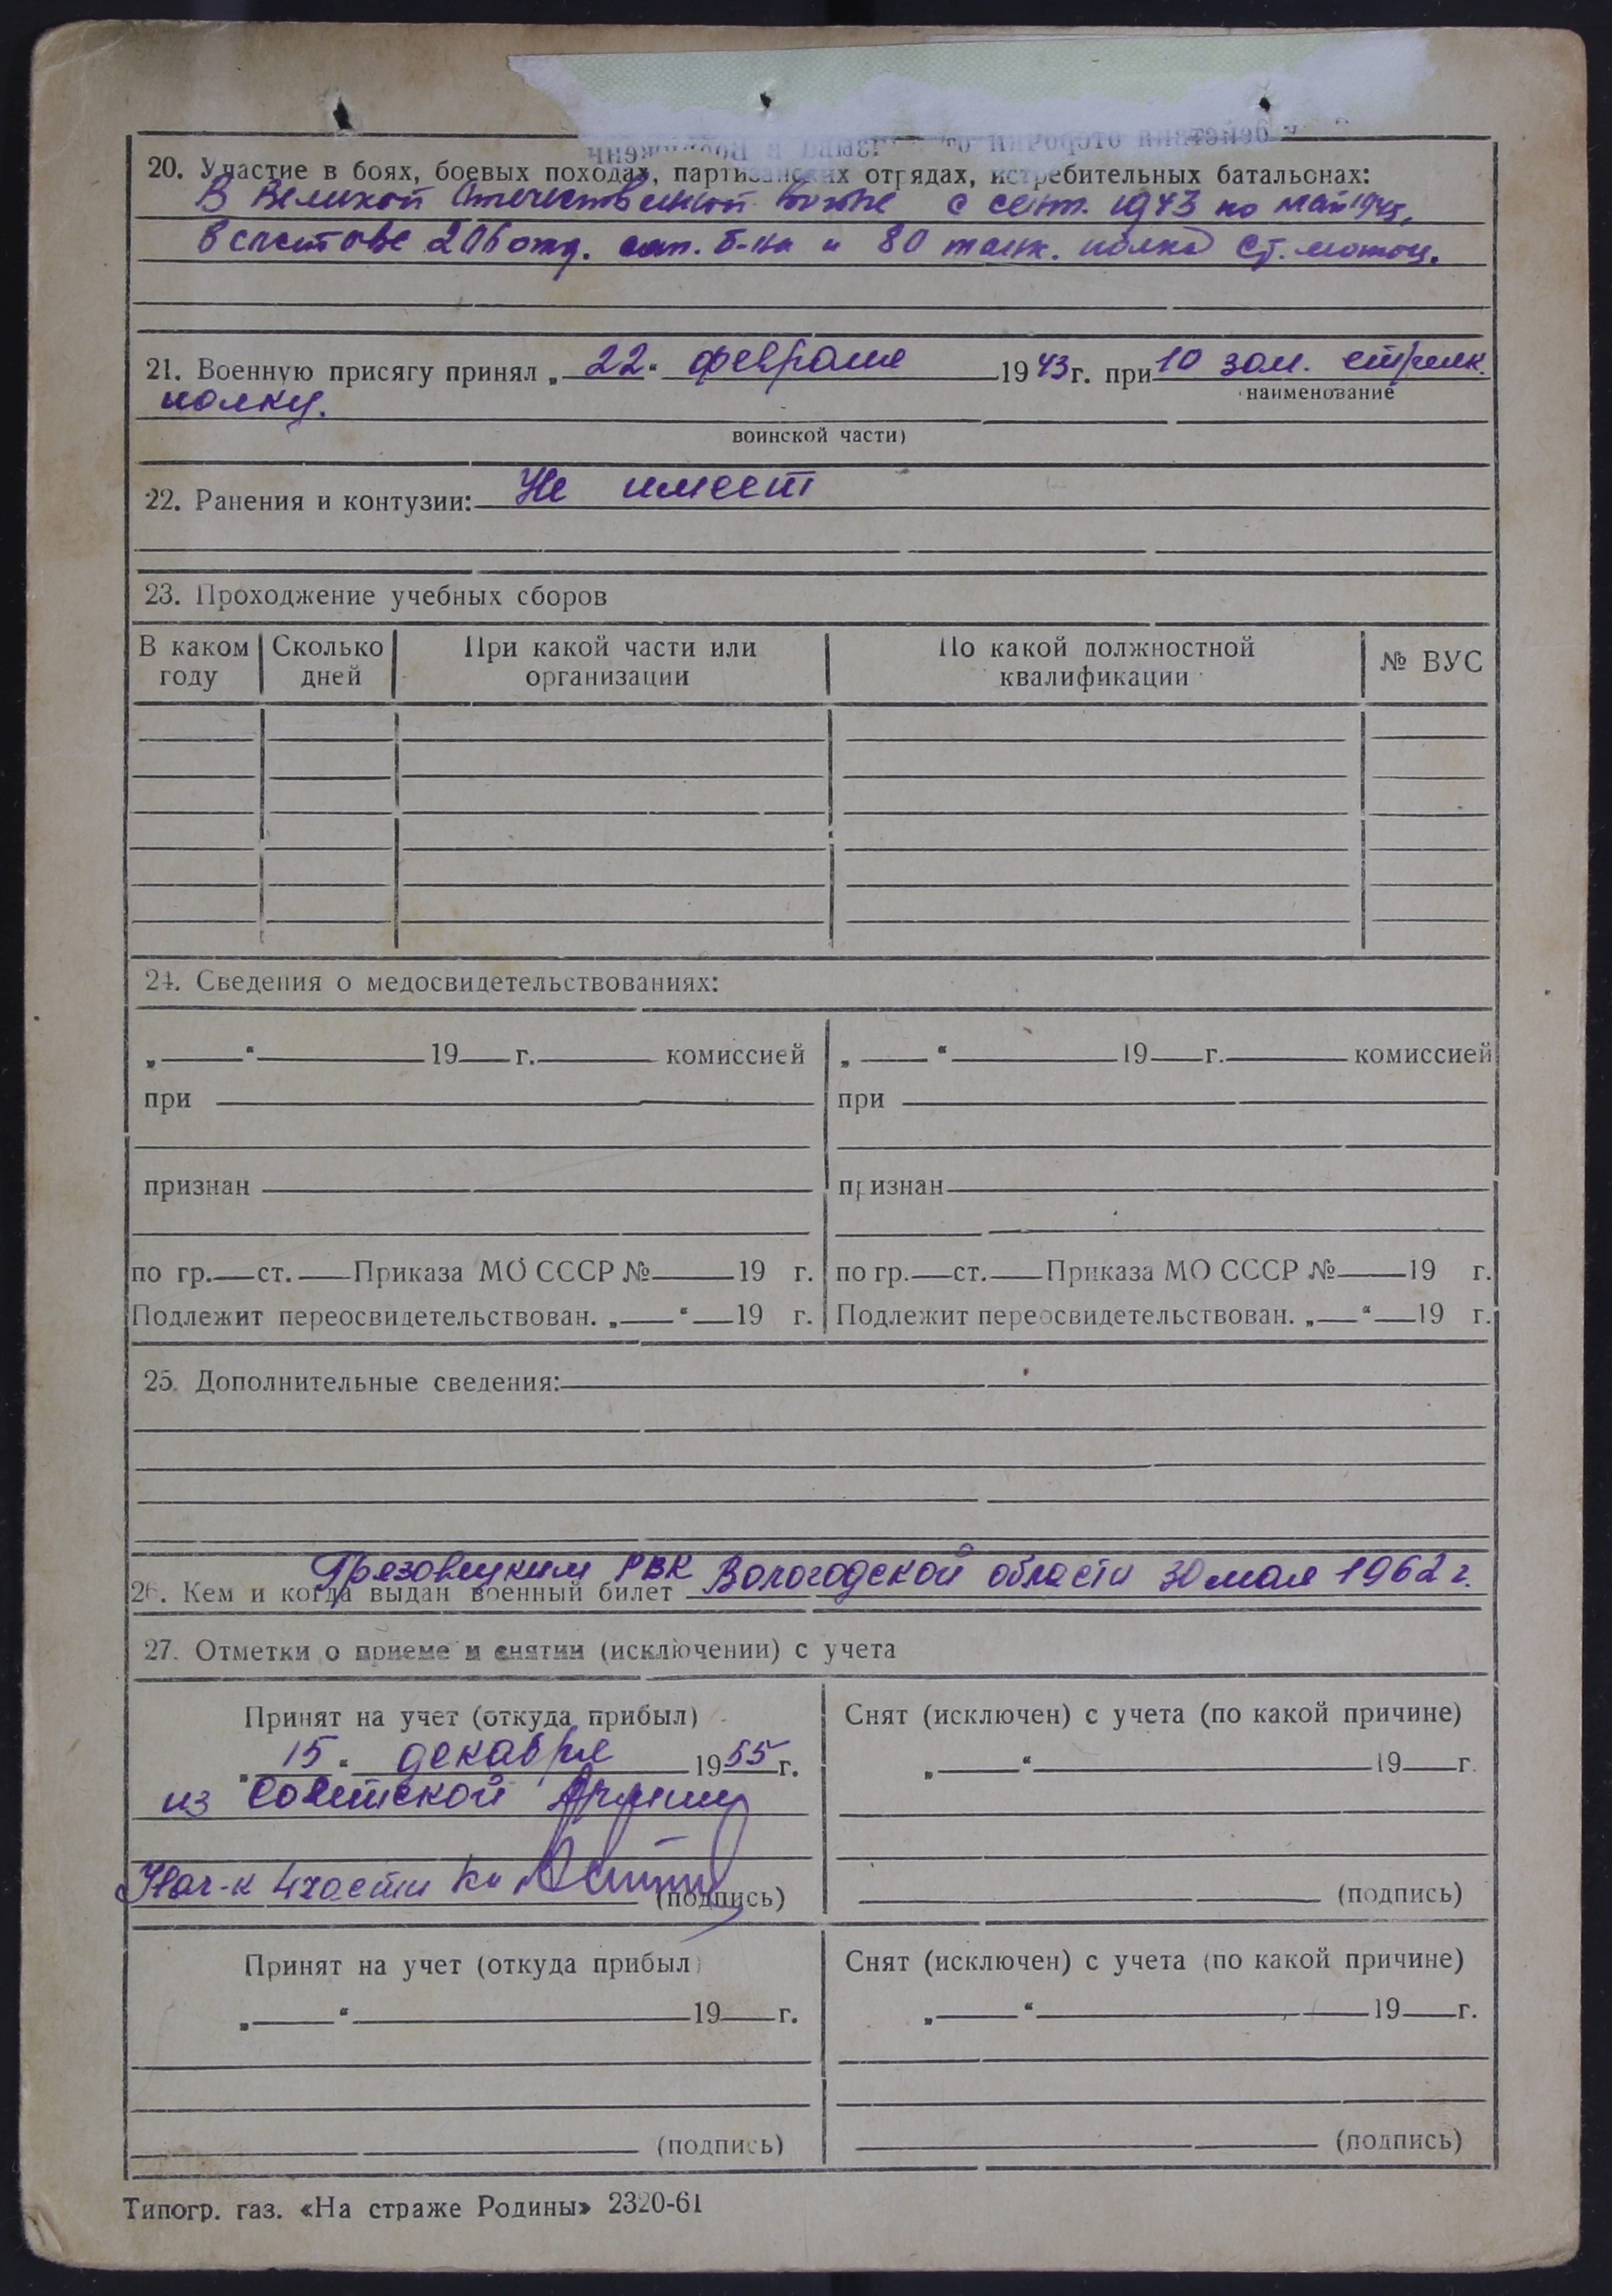 20. Участие в боях, боевых походах, партизанских отрядах, истребительных батальонах:
В Великой Отечественной войне с сент. 1943 по май 1945,
в составе 206 отд. сап. б-на и 80 танк. полка ст. мотоц.
21. Военную присягу принял „22“ февраля 1943 г. при 10 зап. стрелк.
наименование
полку.
воинской части)
22. Ранения и контузии: Не имеет
23. Прохождение учебных сборов
В каком году Сколько дней При какой части или организации По какой должностной квалификации № ВУС
24. Сведения о медосвидетельствованиях:
„ “ 19 г. комиссией „ “ 19 г. комиссией
при при
признан признан
по гр. ст. Приказа МО СССР № 19 г. по гр. ст. Приказа МО СССР № 19 г.
Подлежит переосвидетельствован. „ “ 19 г. Подлежит переосвидетельствован. „ “ 19 г.
25. Дополнительные сведения:
Грязовецким РВК Вологодской области 30 мая 1962 г.
26. Кем и когда выдан военный билет
27. Отметки о приеме и снятии (исключении) с учета
Принят на учет (откуда прибыл) Снят (исключен) с учета (по какой причине)
„15“ декабря 1955 г. „ “ 19 г.
из Советской Армии
Нач-к 4 части к-н (подпись) (подпись)
Принят на учет (откуда прибыл) Снят (исключен) с учета (по какой причине)
„ “ 19 г. „ “ 19 г.
(подпись) (подпись)
Типогр. газ. «На страже Родины» 2320-61